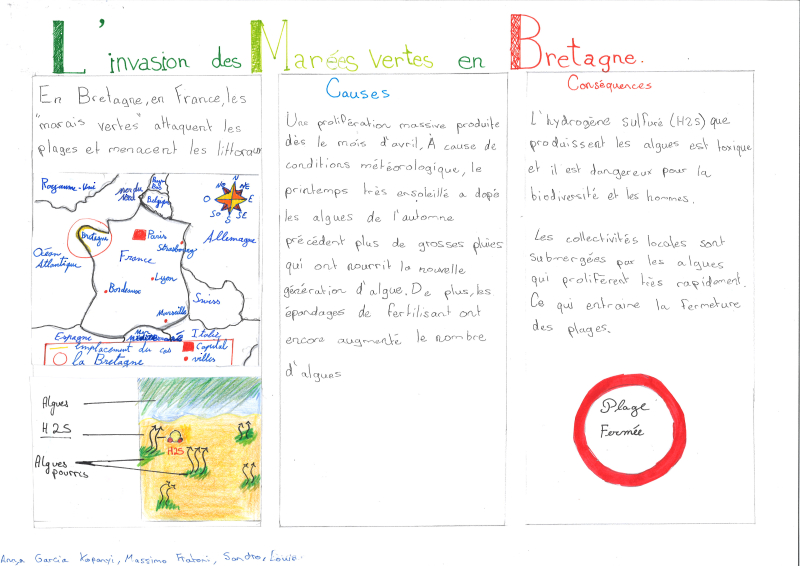 L'invasion des Marées vertes en Bretagne.
En Bretagne, en France, les
"marais vertes" attaquent les
plages et menacent les littoraux
Royaume-Uni
mer du
Nord
Pays-
Bas
Belgique
N
NE
E
SE
S
SO
O
NO
Bretagne
Paris
Strasbourg
Allemagne
France
Océan
Atlantique
Lyon
Bordeaux
Suiss
Marseille
Espagne
Mer
Italie
emplacement du cas
Capital
la Bretagne
villes
Algues
H2S
H2S
Algues
pourris
Causes
Une prolifération massive produite
dès le mois d'avril, À cause de
conditions météorologique, le
printemps très ensoleillé a dopé
les algues de l'automne
précédent plus de grosses pluies
qui ont nourrit la nouvelle
génération d'algue. De plus, les
épandages de fertilisant ont
encore augmenté le nombre
d'algues
Conséquences
L'hydrogène sulfuré (H2S) que
produissent les algues est toxique
et il est dangereux pour la
biodiversité et les hommes.
Les collectivités locales sont
submergées par les algues
qui prolifèrent très rapidement.
Ce qui entraine la fermeture
des plages.
Plage
Fermée
Anna Garcia Kopanyi, Massimo Fratoni, Sandro, Louie.